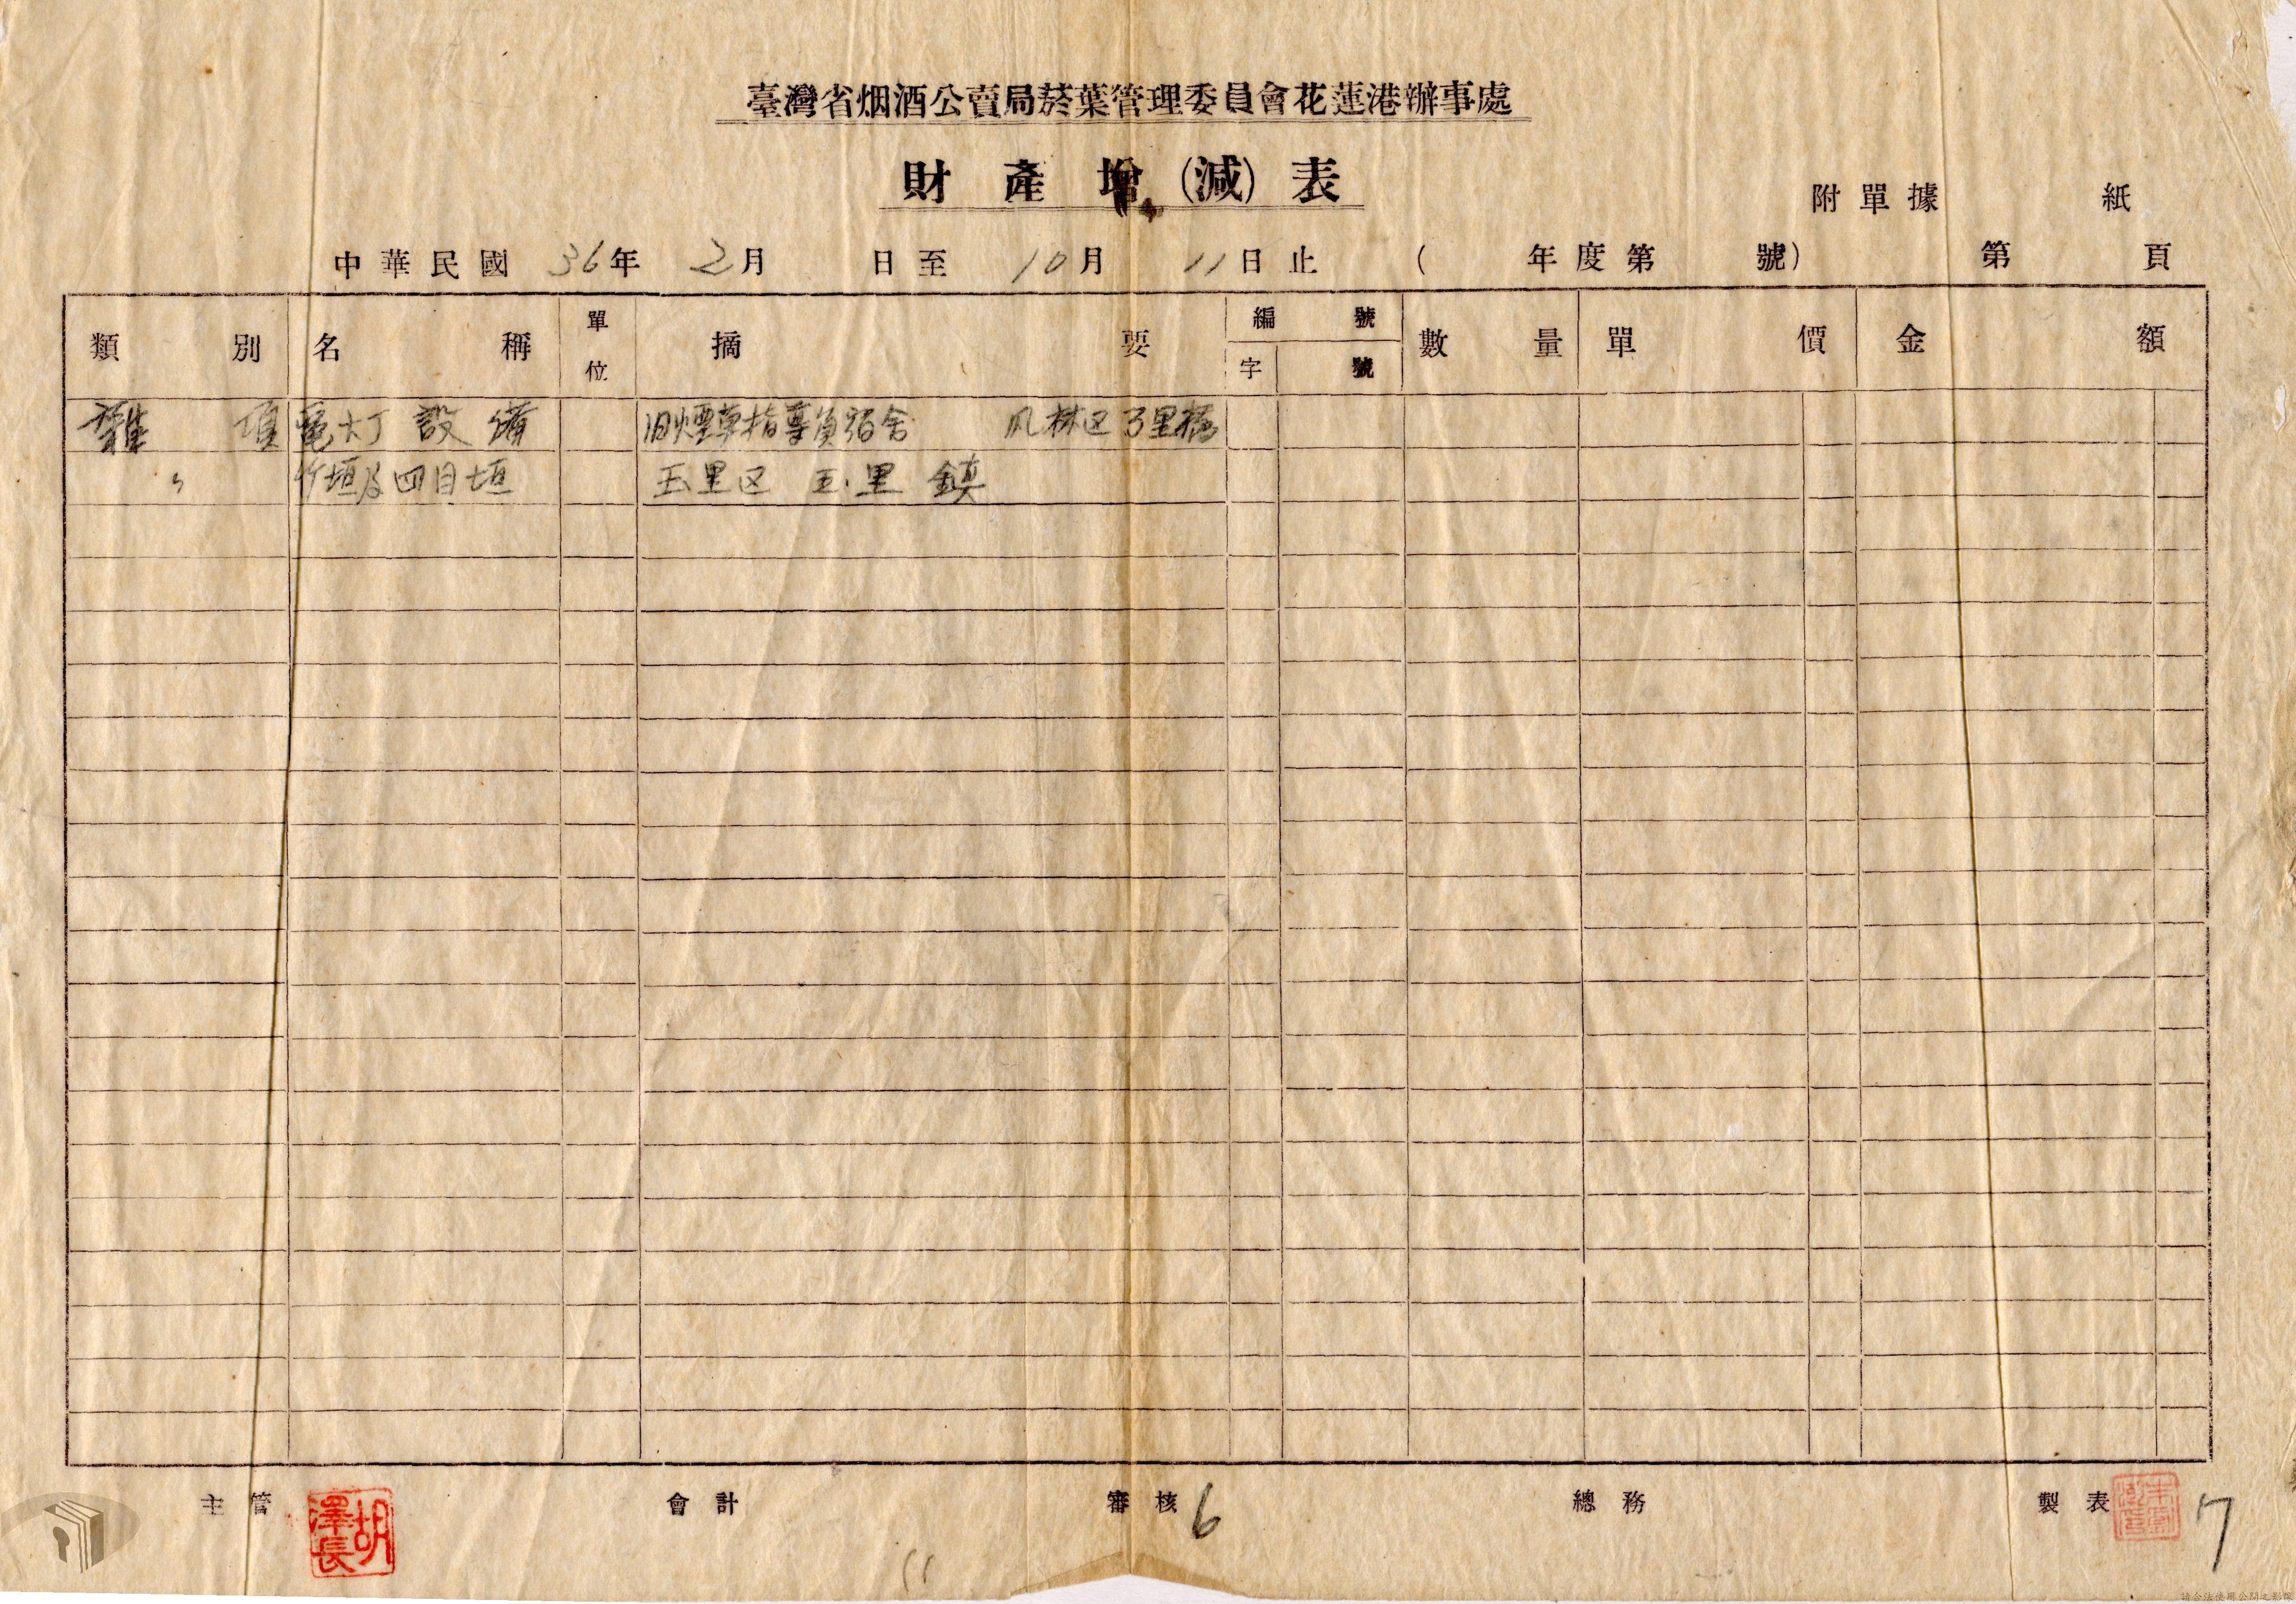 臺灣省烟酒公賣局菸葉管理委員會花蓮港辦事處
財產增(減)表
附單據 紙
中華民國 36年 2月 日至 10月 11日止 ( 年度第 號) 第 頁
類別 名稱 單位 摘要 編號 字 號 數量 單價 金額
雜項 電灯設備 旧煙草指導員宿舍 凤林区 里橋
〃 竹垣及四目垣 玉里区 玉里鎮
主管 胡澤長 會計 審核 6 總務 製表 7
11